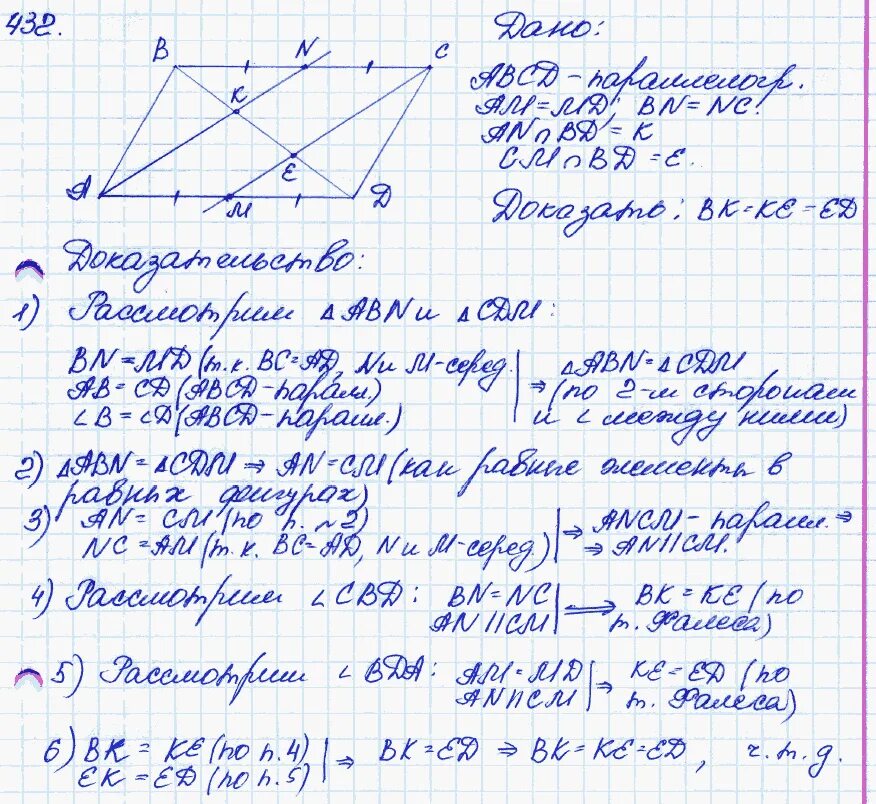 432.
B N C
K
E
A M D
Дано:
ABCD – параллелогр.
AM = MD; BN = NC.
AN ∩ BD = K
CM ∩ BD = E.
Доказать: BK = KE = ED
Доказательство:
1) Рассмотрим △ABN и △CDM:
BN = MD (т.к. BC = AD, N и M – серед.
AB = CD (ABCD – парал.)
∠B = ∠D (ABCD – парал.)
⇒ △ABN = △CDM
(по 2-м сторонам
и ∠ между ними)
2) △ABN = △CDM ⇒ AN = CM (как равные элементы в
равных фигурах)
3) AN = CM (по п. ~2)
NC = AM (т.к. BC = AD, N и M – серед.)
⇒ ANCM – парал. ⇒
⇒ AN || CM.
4) Рассмотрим ∠CBD: BN = NC
AN || CM
⇒ BK = KE (по
т. Фалеса)
5) Рассмотрим ∠BDA: AM = MD
AN || CM
⇒ KE = ED (по
т. Фалеса)
6) BK = KE (по п. 4)
EK = ED (по п. 5)
⇒ BK = ED ⇒ BK = KE = ED, ч.т.д.